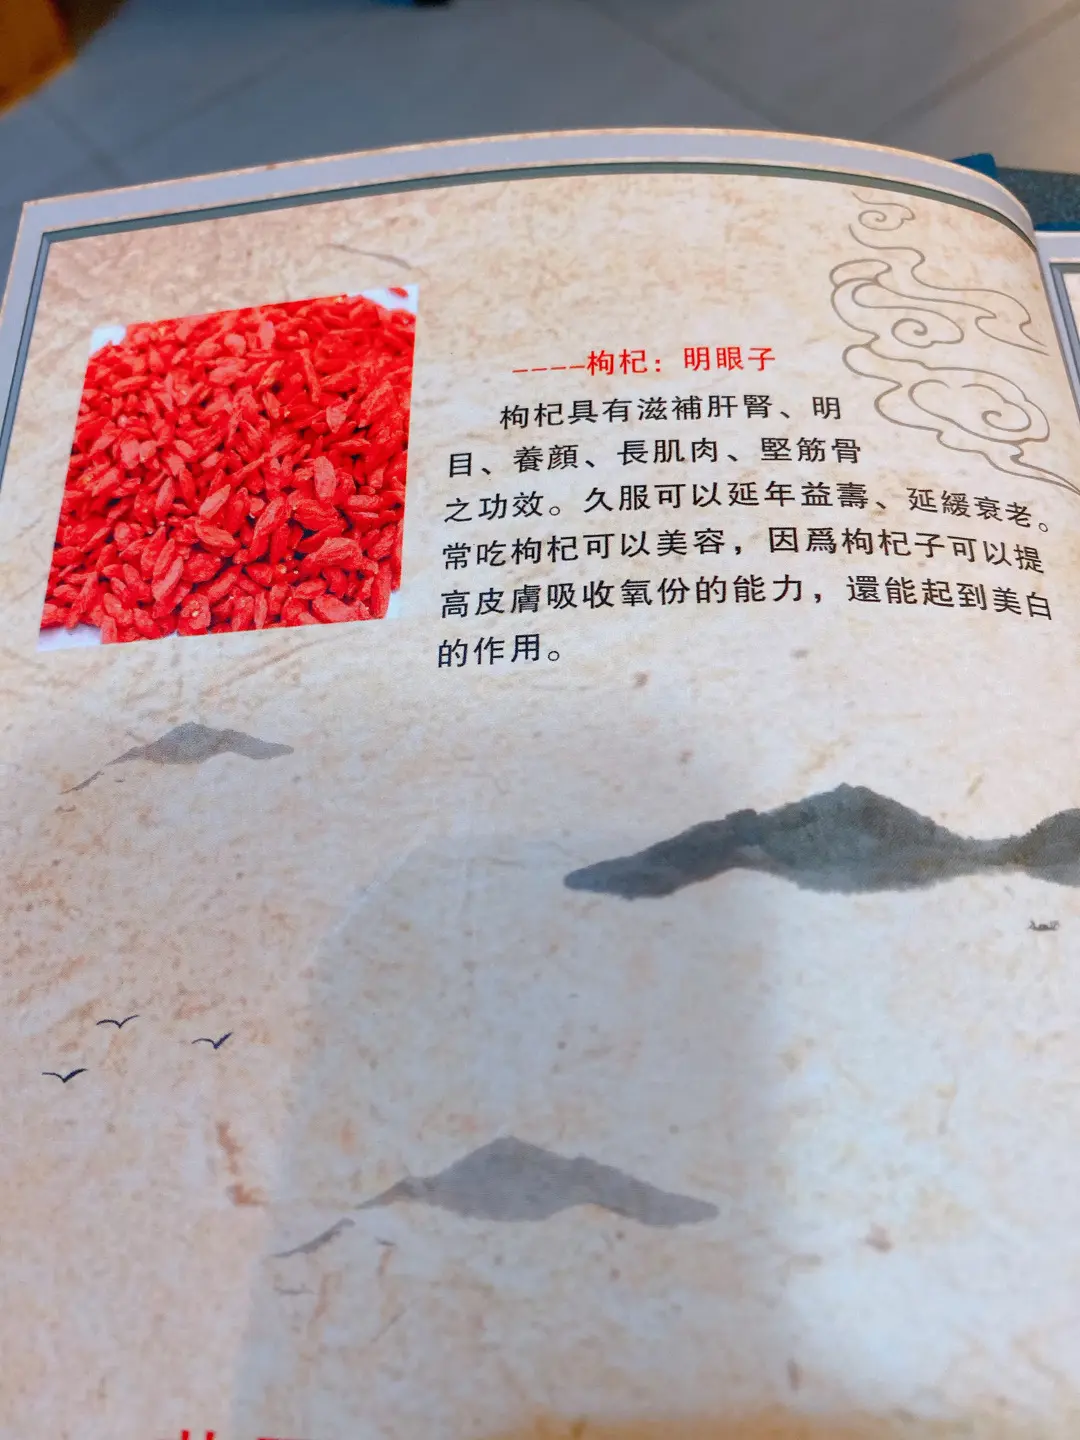 ----枸杞：明眼子
枸杞具有滋補肝腎、明
目、養顔、長肌肉、堅筋骨
之功效。久服可以延年益壽、延緩衰老。
常吃枸杞可以美容，因爲枸杞子可以提
高皮膚吸收氧份的能力，還能起到美白
的作用。